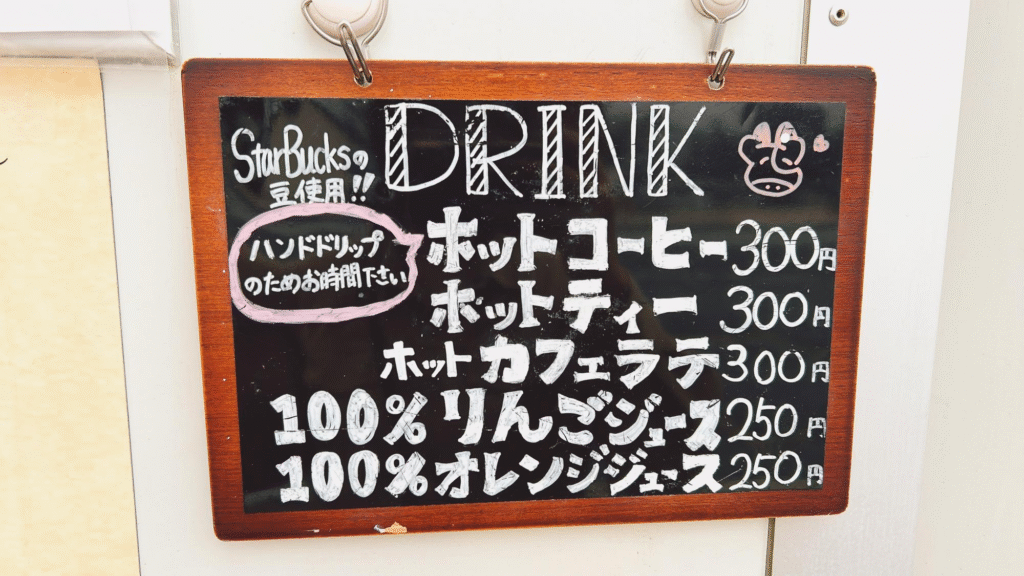 DRINK
StarBucksの
豆使用!!
ハンドドリップ
のためお時間下さい
ホットコーヒー300円
ホットティー 300円
ホットカフェラテ300円
100%りんごジュース250円
100%オレンジジュース250円